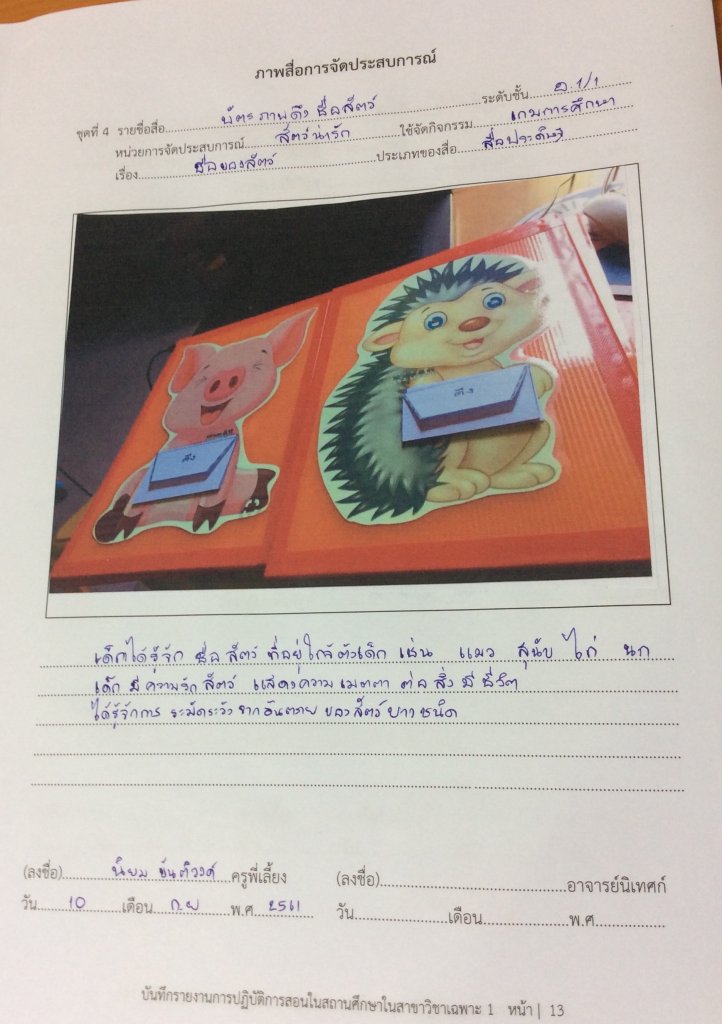 ภาพสื่อการจัดประสบการณ์
ชุดที่ 4 รายชื่อสื่อ บัตรภาพดึง ชื่อสัตว์ ระดับชั้น อ.1/1
หน่วยการจัดประสบการณ์ สัตว์น่ารัก ใช้จัดกิจกรรม เกมการศึกษา
เรื่อง ชื่อของสัตว์ ประเภทของสื่อ สื่อประดิษฐ์
ดึง
ดึง
เด็กได้รู้จัก ชื่อ สัตว์ ที่อยู่ใกล้ตัวเด็ก เช่น แมว สุนัข ไก่ นก
เด็ก มี ความรัก สัตว์ แสดงความ เมตตา ต่อ สิ่ง มี ชีวิต
ได้รู้จักการ ระมัดระวัง จากอันตราย ของ สัตว์ บางชนิด
(ลงชื่อ) นิยม ครูพี่เลี้ยง (ลงชื่อ) อาจารย์นิเทศก์
วัน 10 เดือน ก.ย พ.ศ. 2561 วัน เดือน พ.ศ.
บันทึกรายงานการปฏิบัติการสอนในสถานศึกษาในสาขาวิชาเฉพาะ 1 หน้า | 13